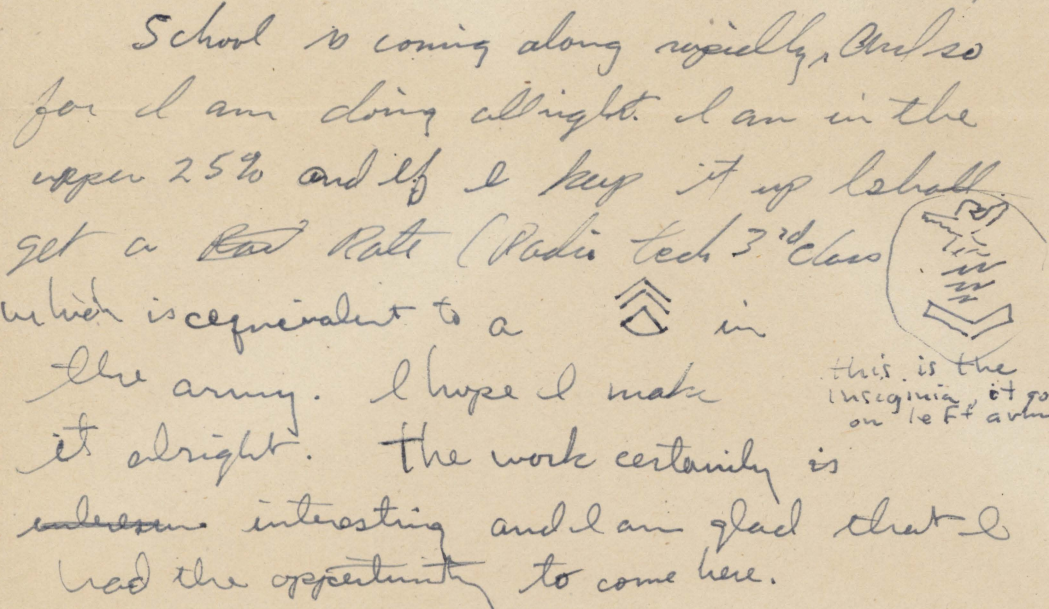 School is coming along rapidly, and so
far I am doing allright. I am in the
upper 25% and if I keep it up I shall
get a Rate (Radio tech 3rd class
which is cequivalent to a in
the army. I hope I make
it alright. The work certainly is
interesting and I am glad that I
had the opportunity to come here.
this is the
insiginia, it go
on left arm